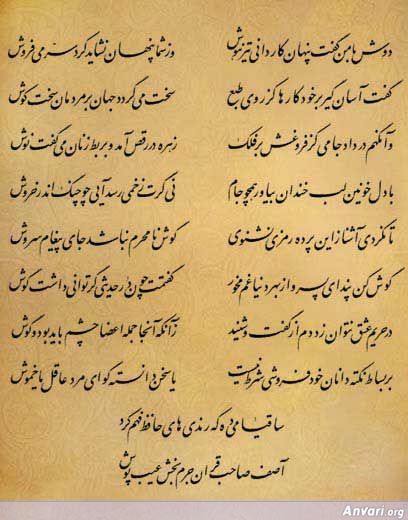 دوش با من گفت پنهان کاردانی تیزهوش وز شما پنهان نشاید کرد سر می فروش
گفت آسان گیر بر خود کارها کز روی طبع سخت می گردد جهان بر مردمان سخت کوش
وآنگهم در داد جامی کز فروغش بر فلک زهره در رقص آمد و بربط زنان می گفت نوش
با دل خونین لب خندان بیاور همچو جام نی گرت زخمی رسد آیی چو چنگ اندر خروش
تا نگردی آشنا زین پرده رمزی نشنوی گوش نامحرم نباشد جای پیغام سروش
گوش کن پند ای پسر و از بهر دنیا غم مخور گفتمت چون در حدیثی گر توانی داشت گوش
در حریم عشق نتوان زد دم از گفت و شنید زانکه آنجا جمله اعضا چشم باید بود و گوش
بر بساط نکته دانان خودفروشی شرط نیست یا سخن دانسته گو ای مرد عاقل یا خموش
ساقیا می ده که رندی های حافظ فهم کرد
آصف صاحب قران جرم بخش عیب پوش
Anvari.org